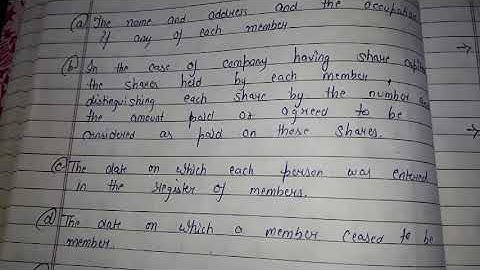 (a) The name and address and the occupation
if any of each member
(b) In the case of company having share capital
the shares held by each member,
distinguishing each share by the number and
the amount paid or agreed to be
considered as paid on those shares.
(c) The date on which each person was entered
in the register of members.
(d) The date on which a member ceased to be
member.